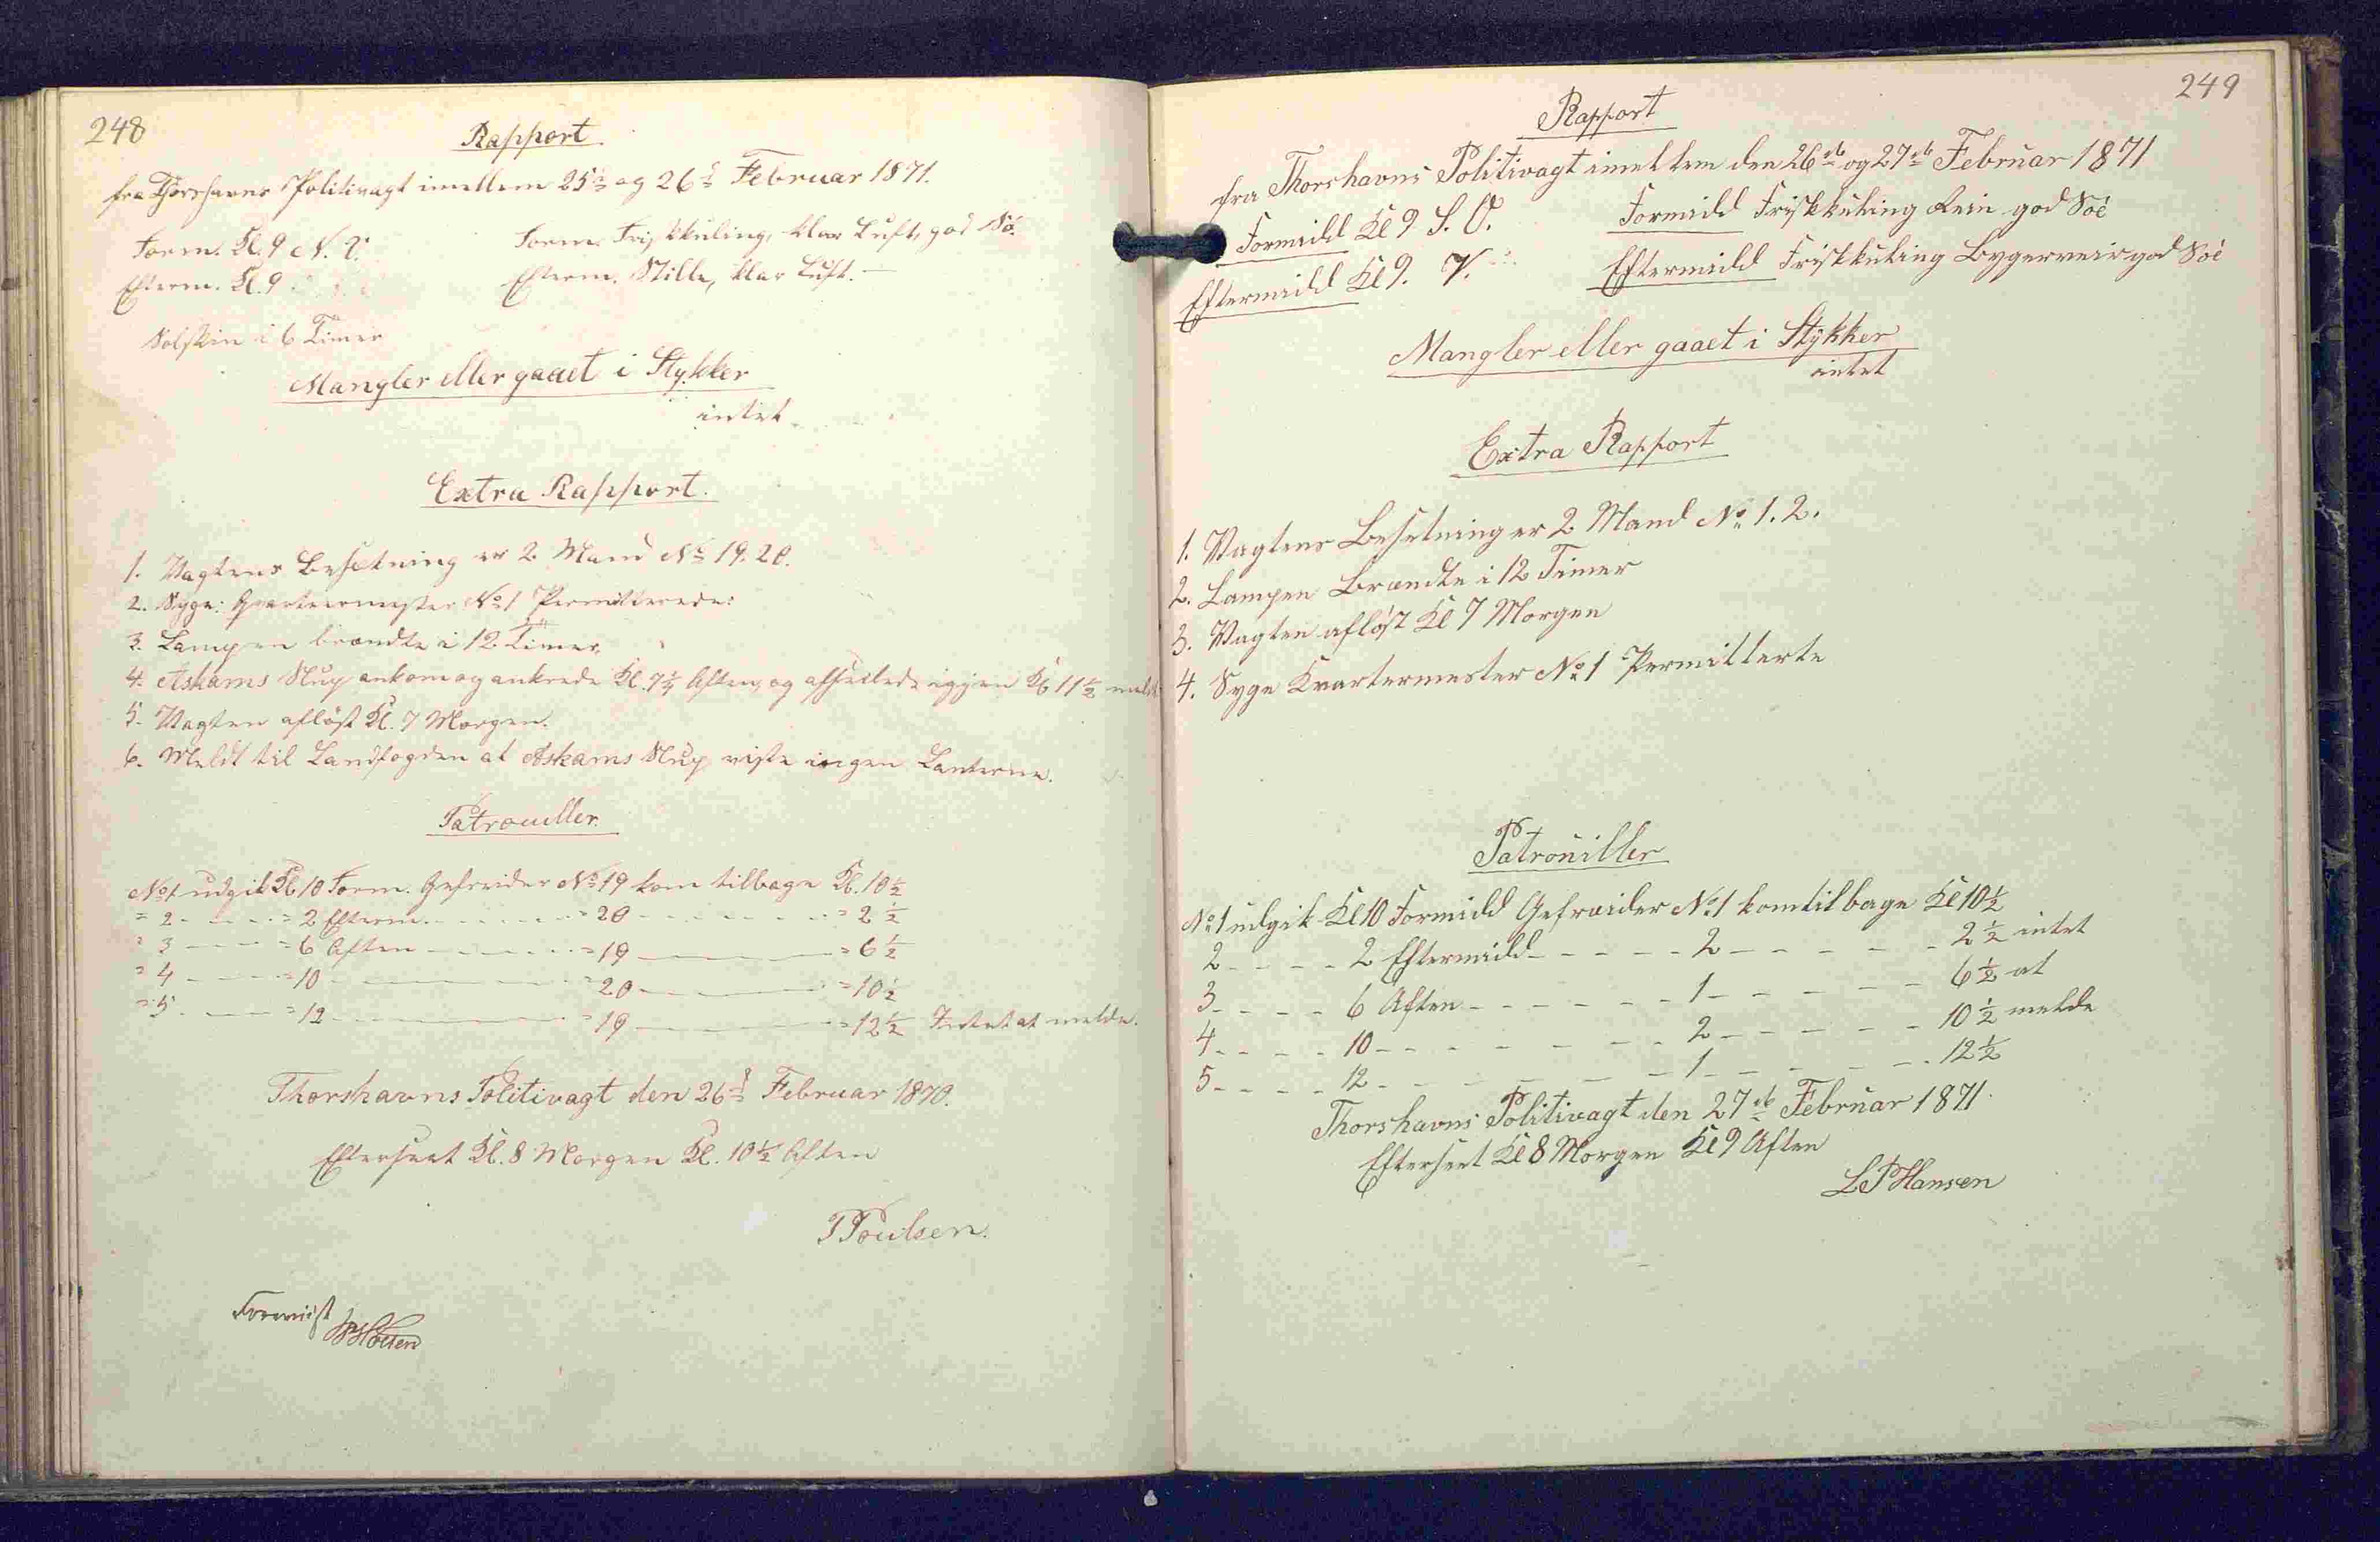 248
Rapport
fra Thorshavns Politivagt imellem 25d og 26d Februar 1871.
Form. Kl. 9 N. V.
Form. Friskkuling, klar Luft, god Sö.
Efterm. Kl. 9
Efterm. Stille, klar Luft. —
Solskin i 6 Timer
Mangler eller gaaet i Stykker
intet
Extra Rapport.
1. Vagtens Besætning er 2 Mand No 19. 20.
2. Syge: Qvarteermester No 1 Permitterede:
3. Lampen brændte i 12 Timer
4. Askams Slup ankom og ankrede Kl. 7½ Aften, og afseilede igjen Kl. 11½ meldt
5. Vagten aflöst Kl. 7 Morgen.
6. Meldt til Landfogden at Askams Slup viste ingen Lanterne.
Patrouiller.
No 1 udgik Kl. 10 Form. Gefreider No 19 kom tilbage Kl. 10½
= 2 - - - = 2 Efterm. - - - = 20 - - - = 2½
= 3 - - - = 6 Aften - - - = 19 - - - = 6½
= 4 - - - = 10 - - - = 20 - - - = 10½
= 5 - - - = 12 - - - = 19 - - - = 12½ Intet at melde.
Thorshavns Politivagt den 26d Februar 1870.
Efterseet Kl. 8 Morgen Kl. 10½ Aften
Poulsen.
Forevist
249
Rapport
fra Thorshavns Politivagt imellem den 26de og 27de Februar 1871
Formidd Kl 9 S. O.
Formidd Friskkuling Rein god Soë
Eftermidd Kl 9. V.
Eftermidd Friskkuling Bygerveir god Soë
Mangler eller gaaet i Stykker
intet
Extra Rapport
1. Vagtens Besetning er 2 Mand No 1. 2.
2. Lampen Brændte i 12 Timer
3. Vagten aflöst Kl 7 Morgen
4. Syge Kvartermester No 1 Permitterte
Patrouiller
No 1 udgik Kl 10 Formidd Gefreider No 1 kom tilbage Kl 10½
2 - - - - 2 Eftermidd - - - - - 2 - - - - - 2½ intet
3 - - - - 6 Aften - - - - - 1 - - - - - 6½ at
4 - - - - 10 - - - - - 2 - - - - - 10½ melde
5 - - - - 12 - - - - - 1 - - - - - 12½
Thorshavns Politivagt den 27de Februar 1871.
Efterseet Kl 8 Morgen Kl 9 Aften
L P Hansen